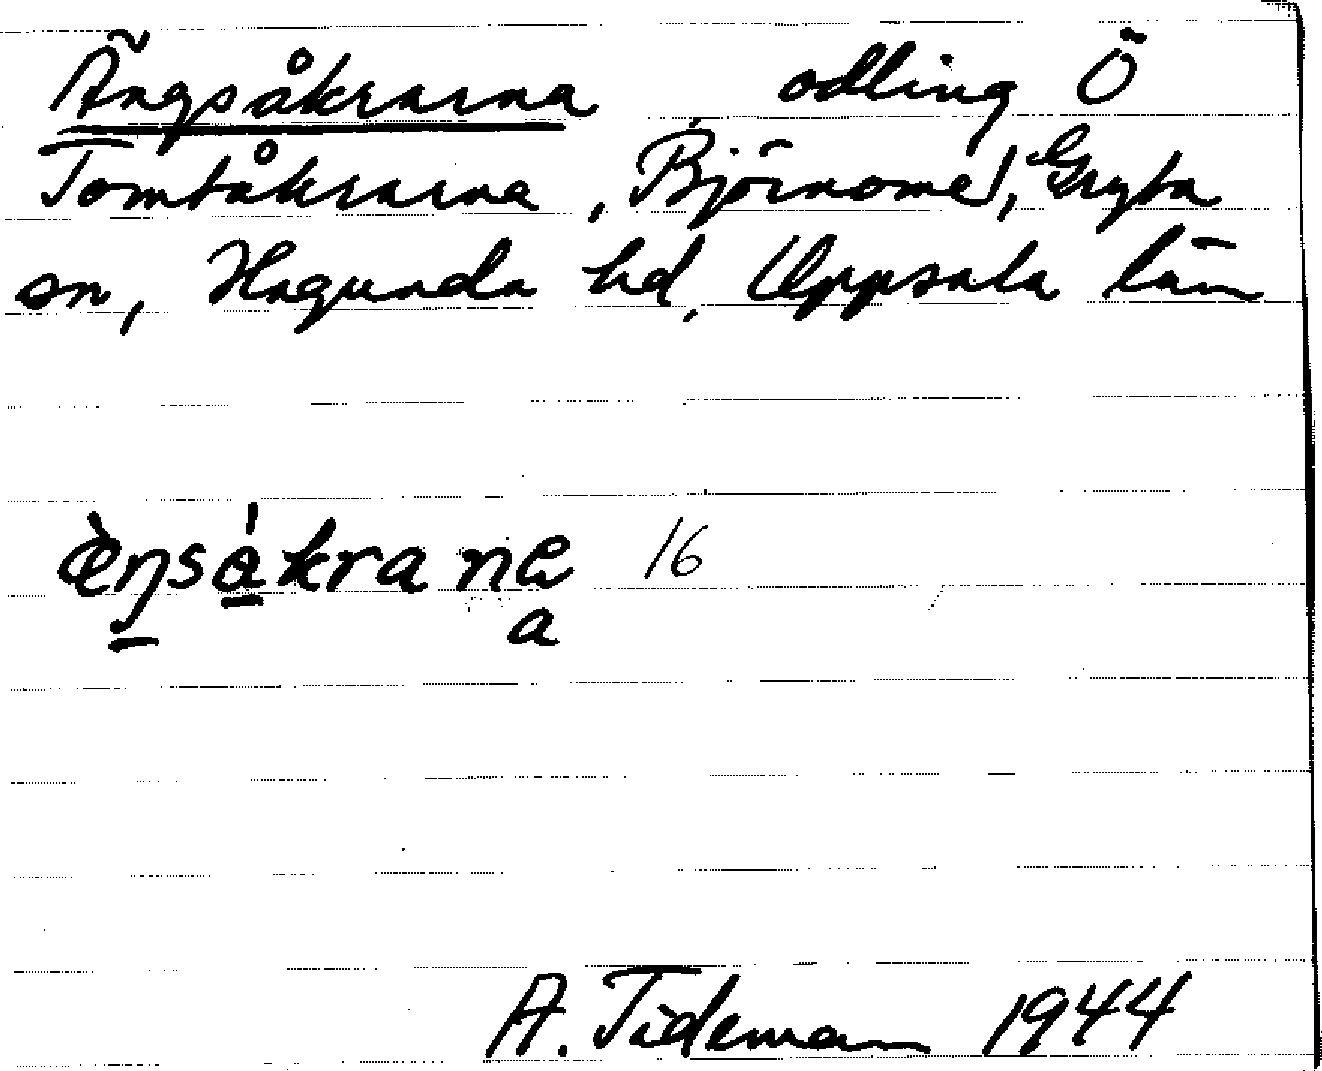 Ängsåkrarna odling Ö
Tomtåkrarna, Björnome), Gryta
sn, Hagunda hd, Uppsala län
ὲŋsákranа 16
a
A. Tideman 1944